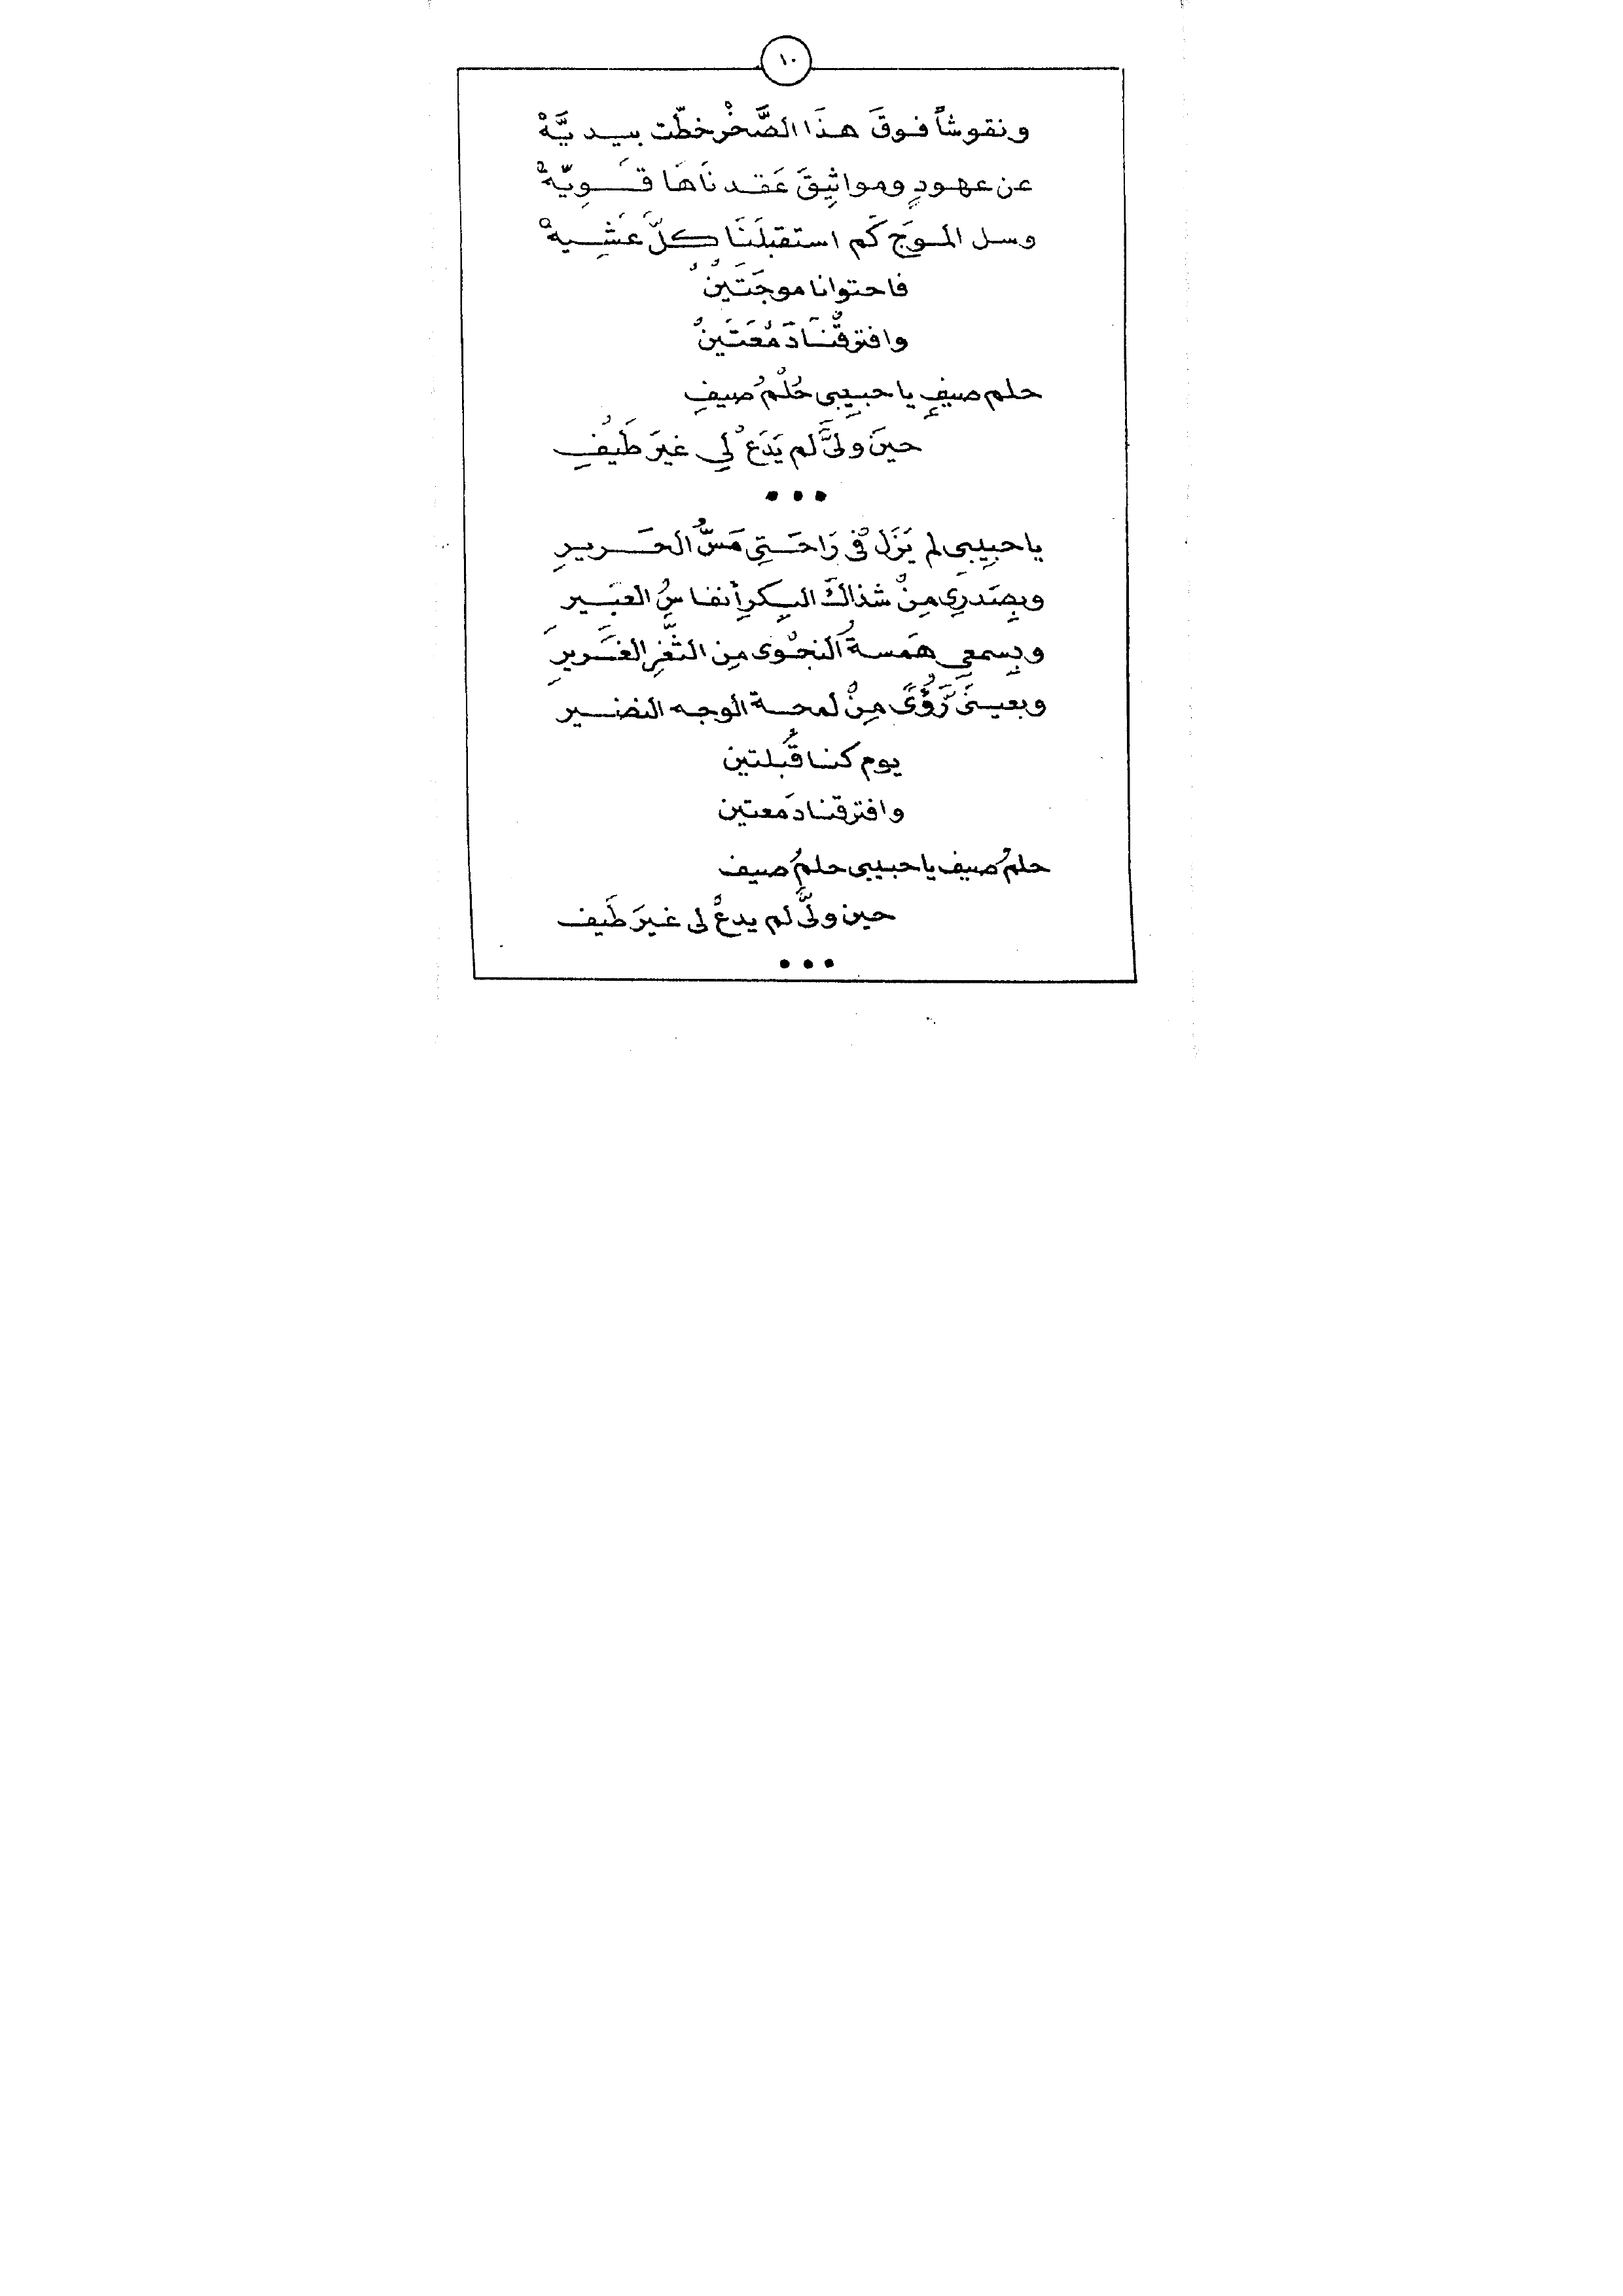 ١٠
ونقوشاً فوقَ هذَا الصَّخْرِ خطّت بيديَّهْ
عن عهودٍ ومواثِيقَ عَقدنَاهَا قَوِيّهْ
وسل الموَج كَم استقبلَنَا كلَّ عَشِيهْ
فاحتوانا موجَتَينْ
وافترقْنَا دَمْعَتَينْ
حلم صيفٍ يا حبيبِى حُلْمُ صيفِ
حينَ ولىَّ لم يَدَعْ لي غيرَ طَيْفِ
•••
يا حبيبِى لم يَزَلْ فى رَاحَتِى مَسُّ الحَريرِ
وبِصَدرِى مِنْ شذاكَ البِكرِ أنفاسُ العَبيرِ
وبِسمعِى هَمسةُ النجْوى مِن الثَّغرِ الغَريرِ
وبعينىَ رُؤًى مِنْ لمحة الوجه النضير
يوم كنا قُبلتين
وافترقنا دَمعتين
حلمُ صيف يا حبيبى حلمُ صيف
حين ولىَّ لم يدعْ لى غيرَ طَيف
•••